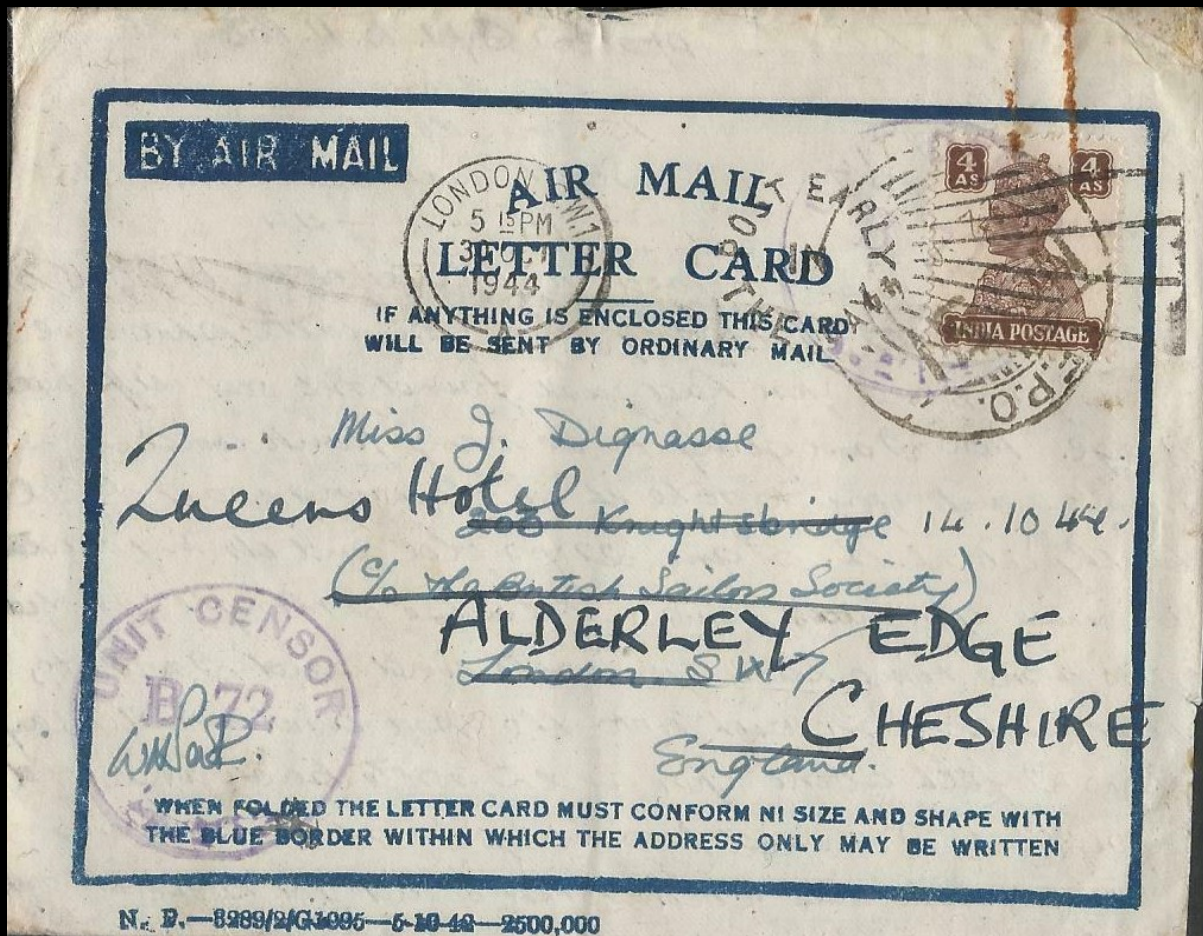 BY AIR MAIL
AIR MAIL
LETTER CARD
IF ANYTHING IS ENCLOSED THIS CARD
WILL BE SENT BY ORDINARY MAIL
LONDON S.W.1
5 15 PM
30 OCT
1944
A
POST EARLY
IN
THE
4 AS 4 AS
INDIA POSTAGE
F.P.O.
Miss J. Dignasse
Queens Hotel
200 Knightsbridge 14.10.44.
(c/o The British Sailors Society)
ALDERLEY EDGE
London S.W.7
CHESHIRE
England.
UNIT CENSOR
B 72
WHEN FOLDED THE LETTER CARD MUST CONFORM NI SIZE AND SHAPE WITH
THE BLUE BORDER WITHIN WHICH THE ADDRESS ONLY MAY BE WRITTEN
N. P.—8289/2/G1995—5-10-42—2500,000